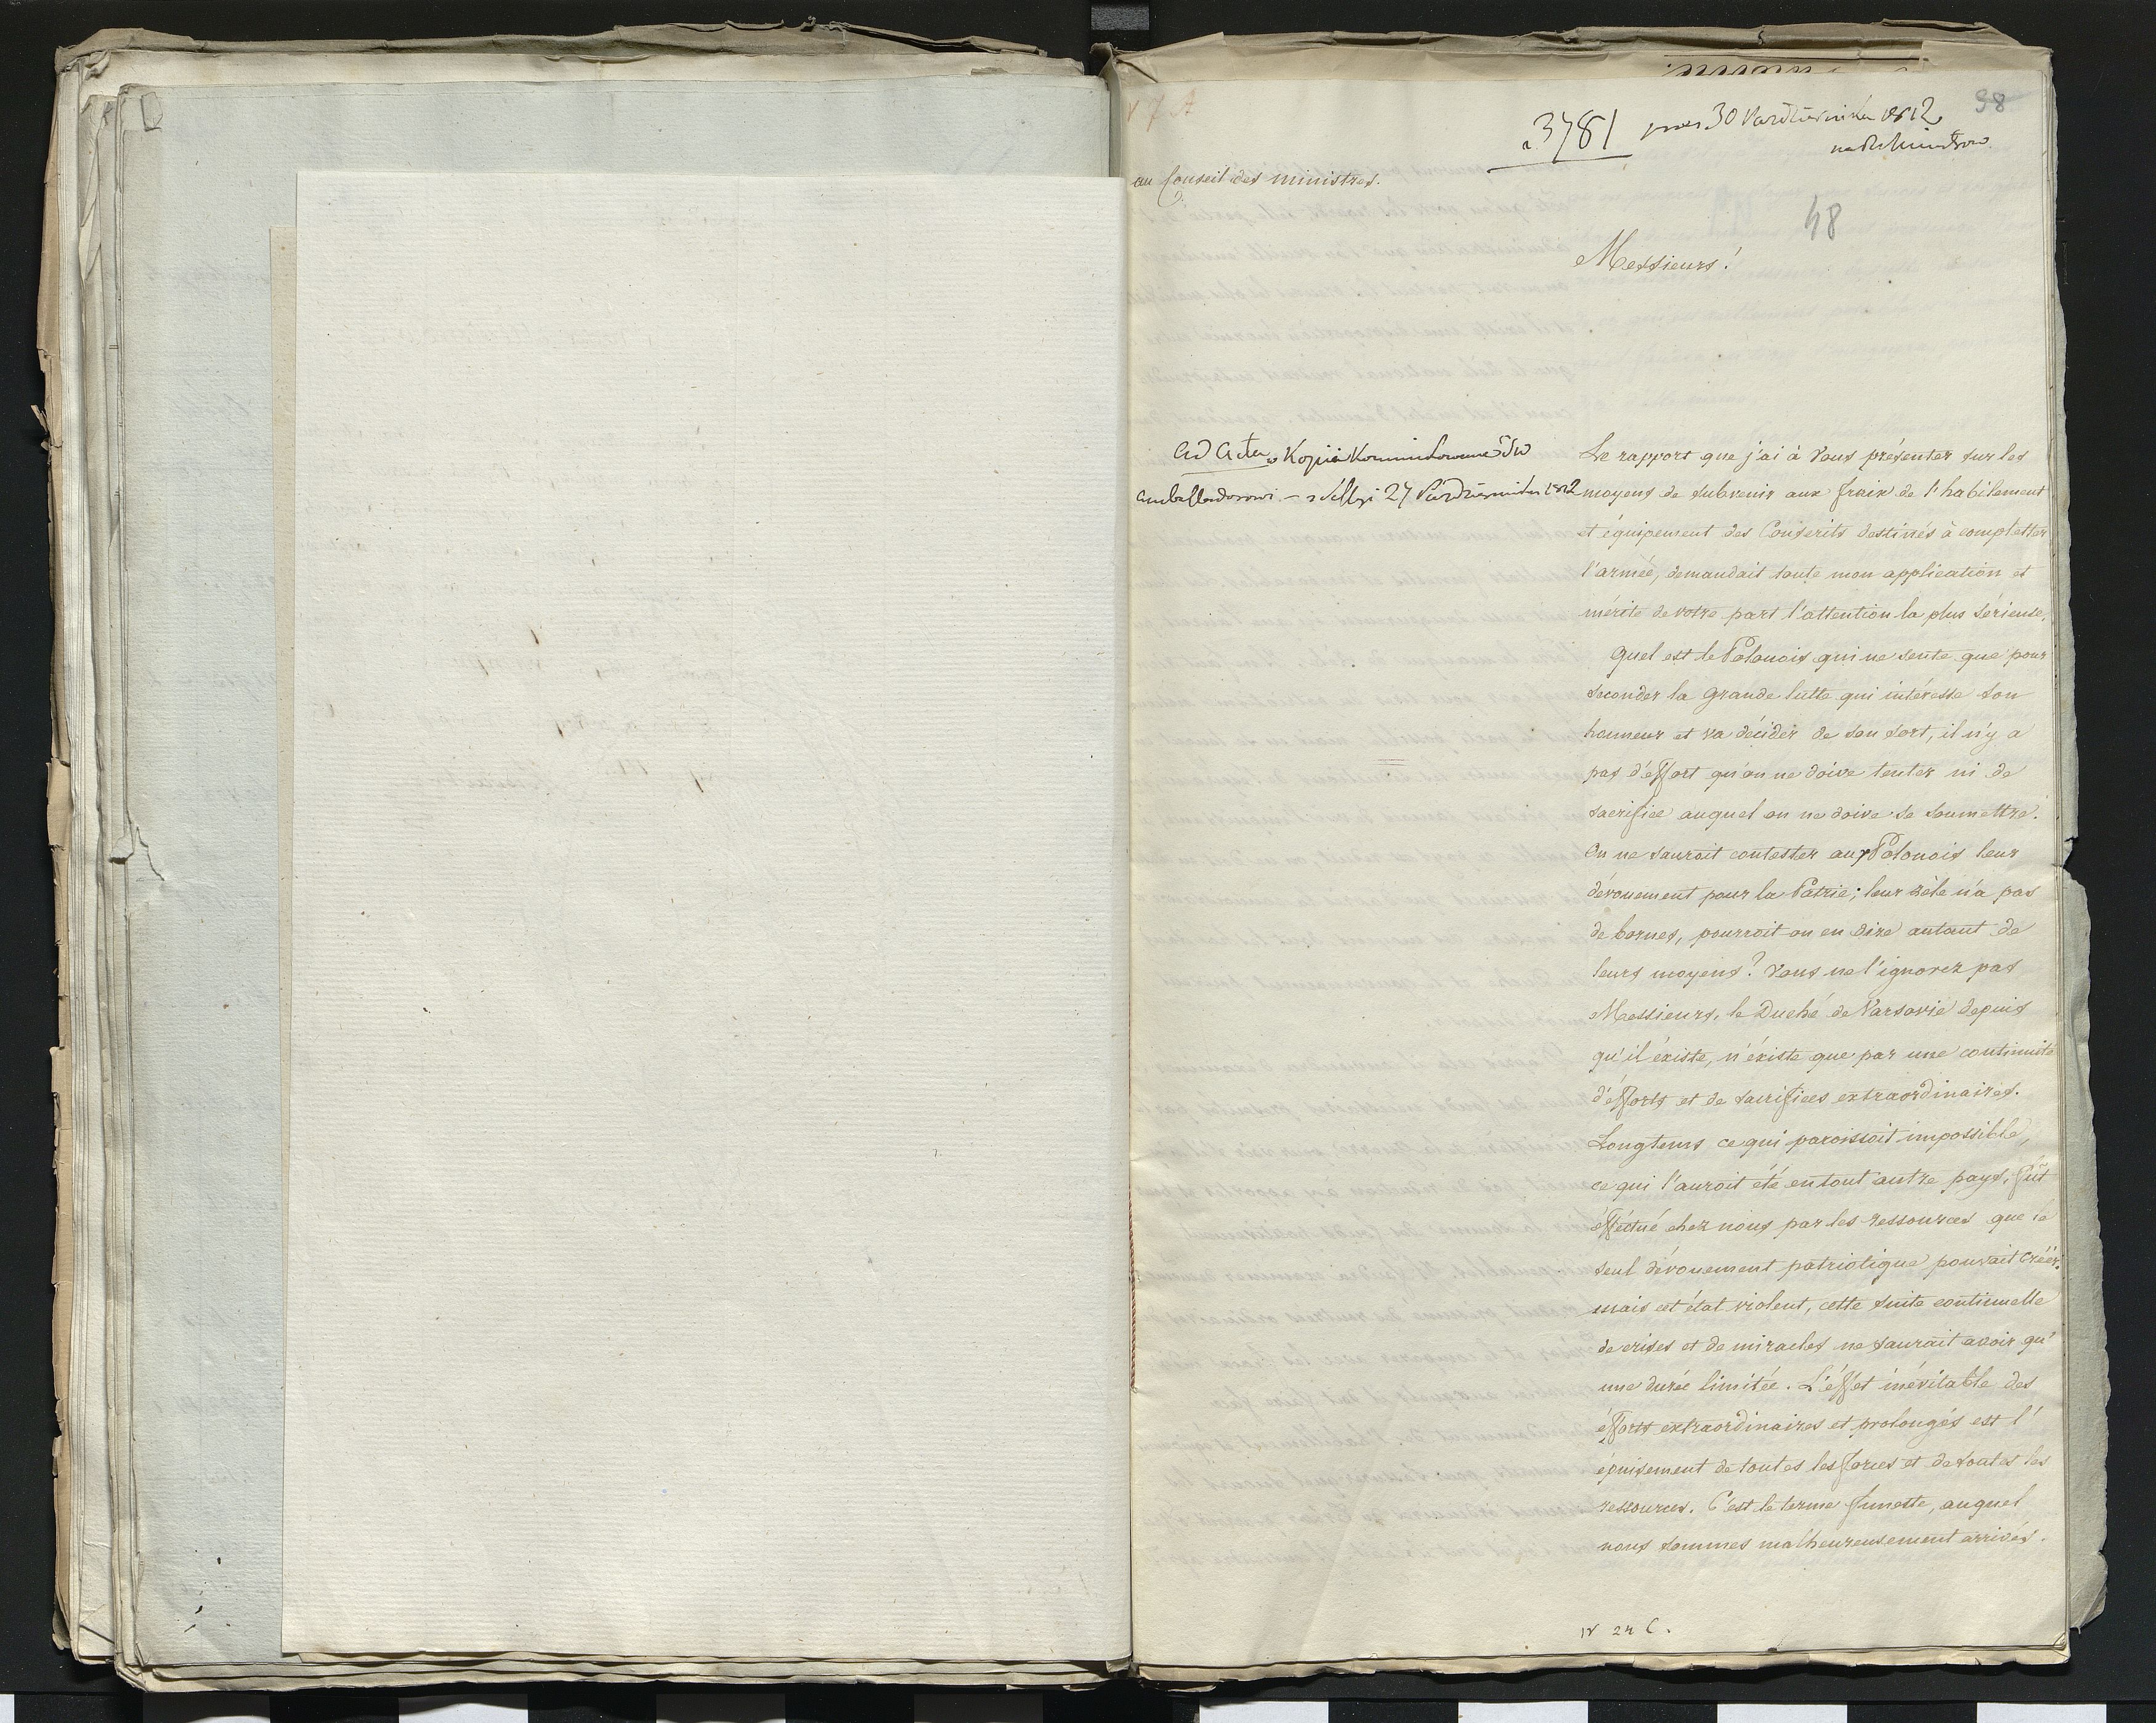 98
3781 praes 30 Października 1812
na R. Ministrów
au Conseil des ministres.
48
Messieurs!
Ad Acta, Kopia Kommunikowana JW
Ambassadorowi – z Sessyi 27 Października 1812
Le rapport que j'ai à Vous présenter sur les
moyens de subvenir aux fraix de l'habilement
et équipement des Conscrits destinés à completter
l'armée, demandait toute mon application et
mérite de votre part l'attention la plus sérieuse.
Quel est le Polonois qui ne sente que pour
seconder la grande lutte qui intéresse son
honneur et va décider de son sort, il n'y a
pas d'éffort qu'on ne doive tenter ni de
sacrifice auquel on ne doive se soumettre.
On ne sauroit contester aux Polonois leur
dévouement pour la Patrie; leur zèle n'a pas
de bornes, pourroit on en dire autant de
leurs moyens? Vous ne l'ignorez pas
Messieurs, le Duché de Varsovie depuis
qu'il éxiste, n'éxiste que par une continuité
d'éfforts et de sacrifices extraordinaires.
Longtems ce qui paroissoit impossible,
ce qui l'auroit été en tout autre pays, fût
éfféctué chez nous par les ressources que le
seul dévouement patriotique pouvait créer.
mais cet état violent, cette suite continuelle
de crises et de miracles ne saurait avoir qu'
une durée limitée. L'éffet inévitable des
éfforts extraordinaires et prolongés est l'
epuisement de toutes les forces et de toutes les
ressources. C'est le terme funeste, auquel
nous sommes malheureusement arrivés.